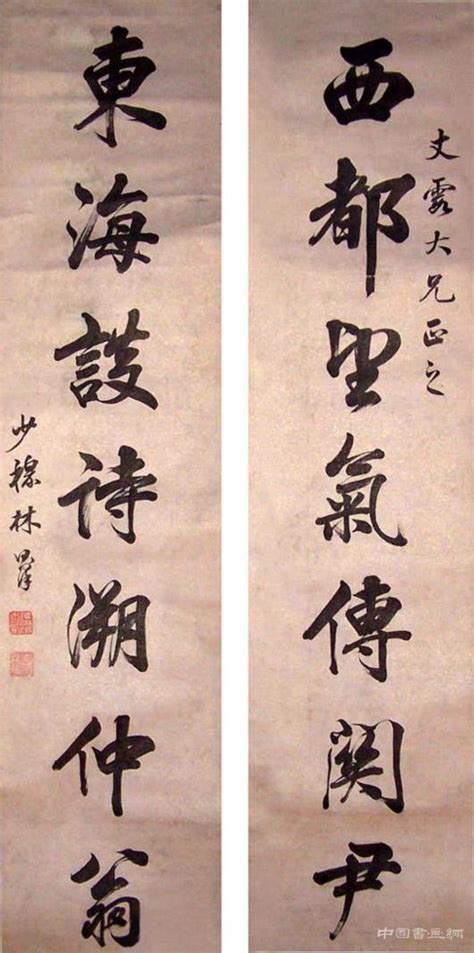 西都望氣傳關尹
丈霞大兄正之
東海談詩溯仲翁
少穆林則徐
中国書畫網